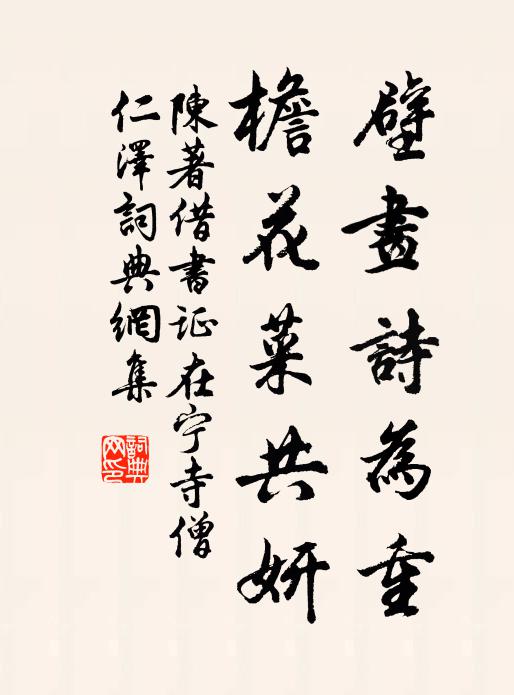 壁畫詩為重
檐花菜共妍
陳著借書証在宁寺僧
仁澤詞典網集
詞典網印